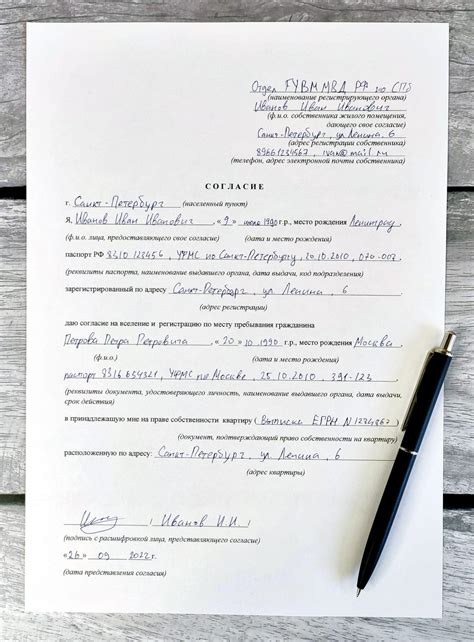 Отдел ГУВМ МВД РФ по СПб
(наименование регистрирующего органа)
Иванов Иван Иванович
(ф.и.о. собственника жилого помещения,
дающего свое согласие)
Санкт-Петербург, ул Ленина, 6
(адрес регистрации собственника)
89661234567, ivan@mail.ru
(телефон, адрес электронной почты собственника)
СОГЛАСИЕ
г. Санкт-Петербург (населенный пункт)
Я, Иванов Иван Иванович, «9» июля 1990 г.р., место рождения Ленинград,
(ф.и.о. лица, предоставляющего свое согласие) (дата и место рождения)
паспорт РФ 8310 123456, УФМС по Санкт-Петербургу, 20.10.2010, 070-007,
(реквизиты паспорта, наименование выдавшего органа, дата выдачи, код подразделения)
зарегистрированный по адресу Санкт-Петербург, ул. Ленина, 6,
(адрес регистрации)
даю согласие на вселение и регистрацию по месту пребывания гражданина
Петрова Петра Петровича, «20» 10 1990 г.р., место рождения Москва,
(ф.и.о.) (дата и место рождения)
паспорт 8316 654321, УФМС по Москве, 25.10.2010, 391-123,
(реквизиты документа, удостоверяющего личность, наименование выдавшего органа, дата выдачи,
срок действия)
в принадлежащую мне на праве собственности квартиру (Выписка ЕГРН N 1234867)
(документ, подтверждающий право собственности на квартиру)
расположенную по адресу: Санкт-Петербург, ул Ленина, 6
(адрес квартиры)
/ Иванов И.И. /
(подпись с расшифровкой лица, представляющего согласие)
«26» 09 2022 г.
(дата представления согласия)